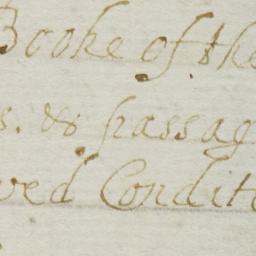 Booke of the
s. & passag
ved Condit